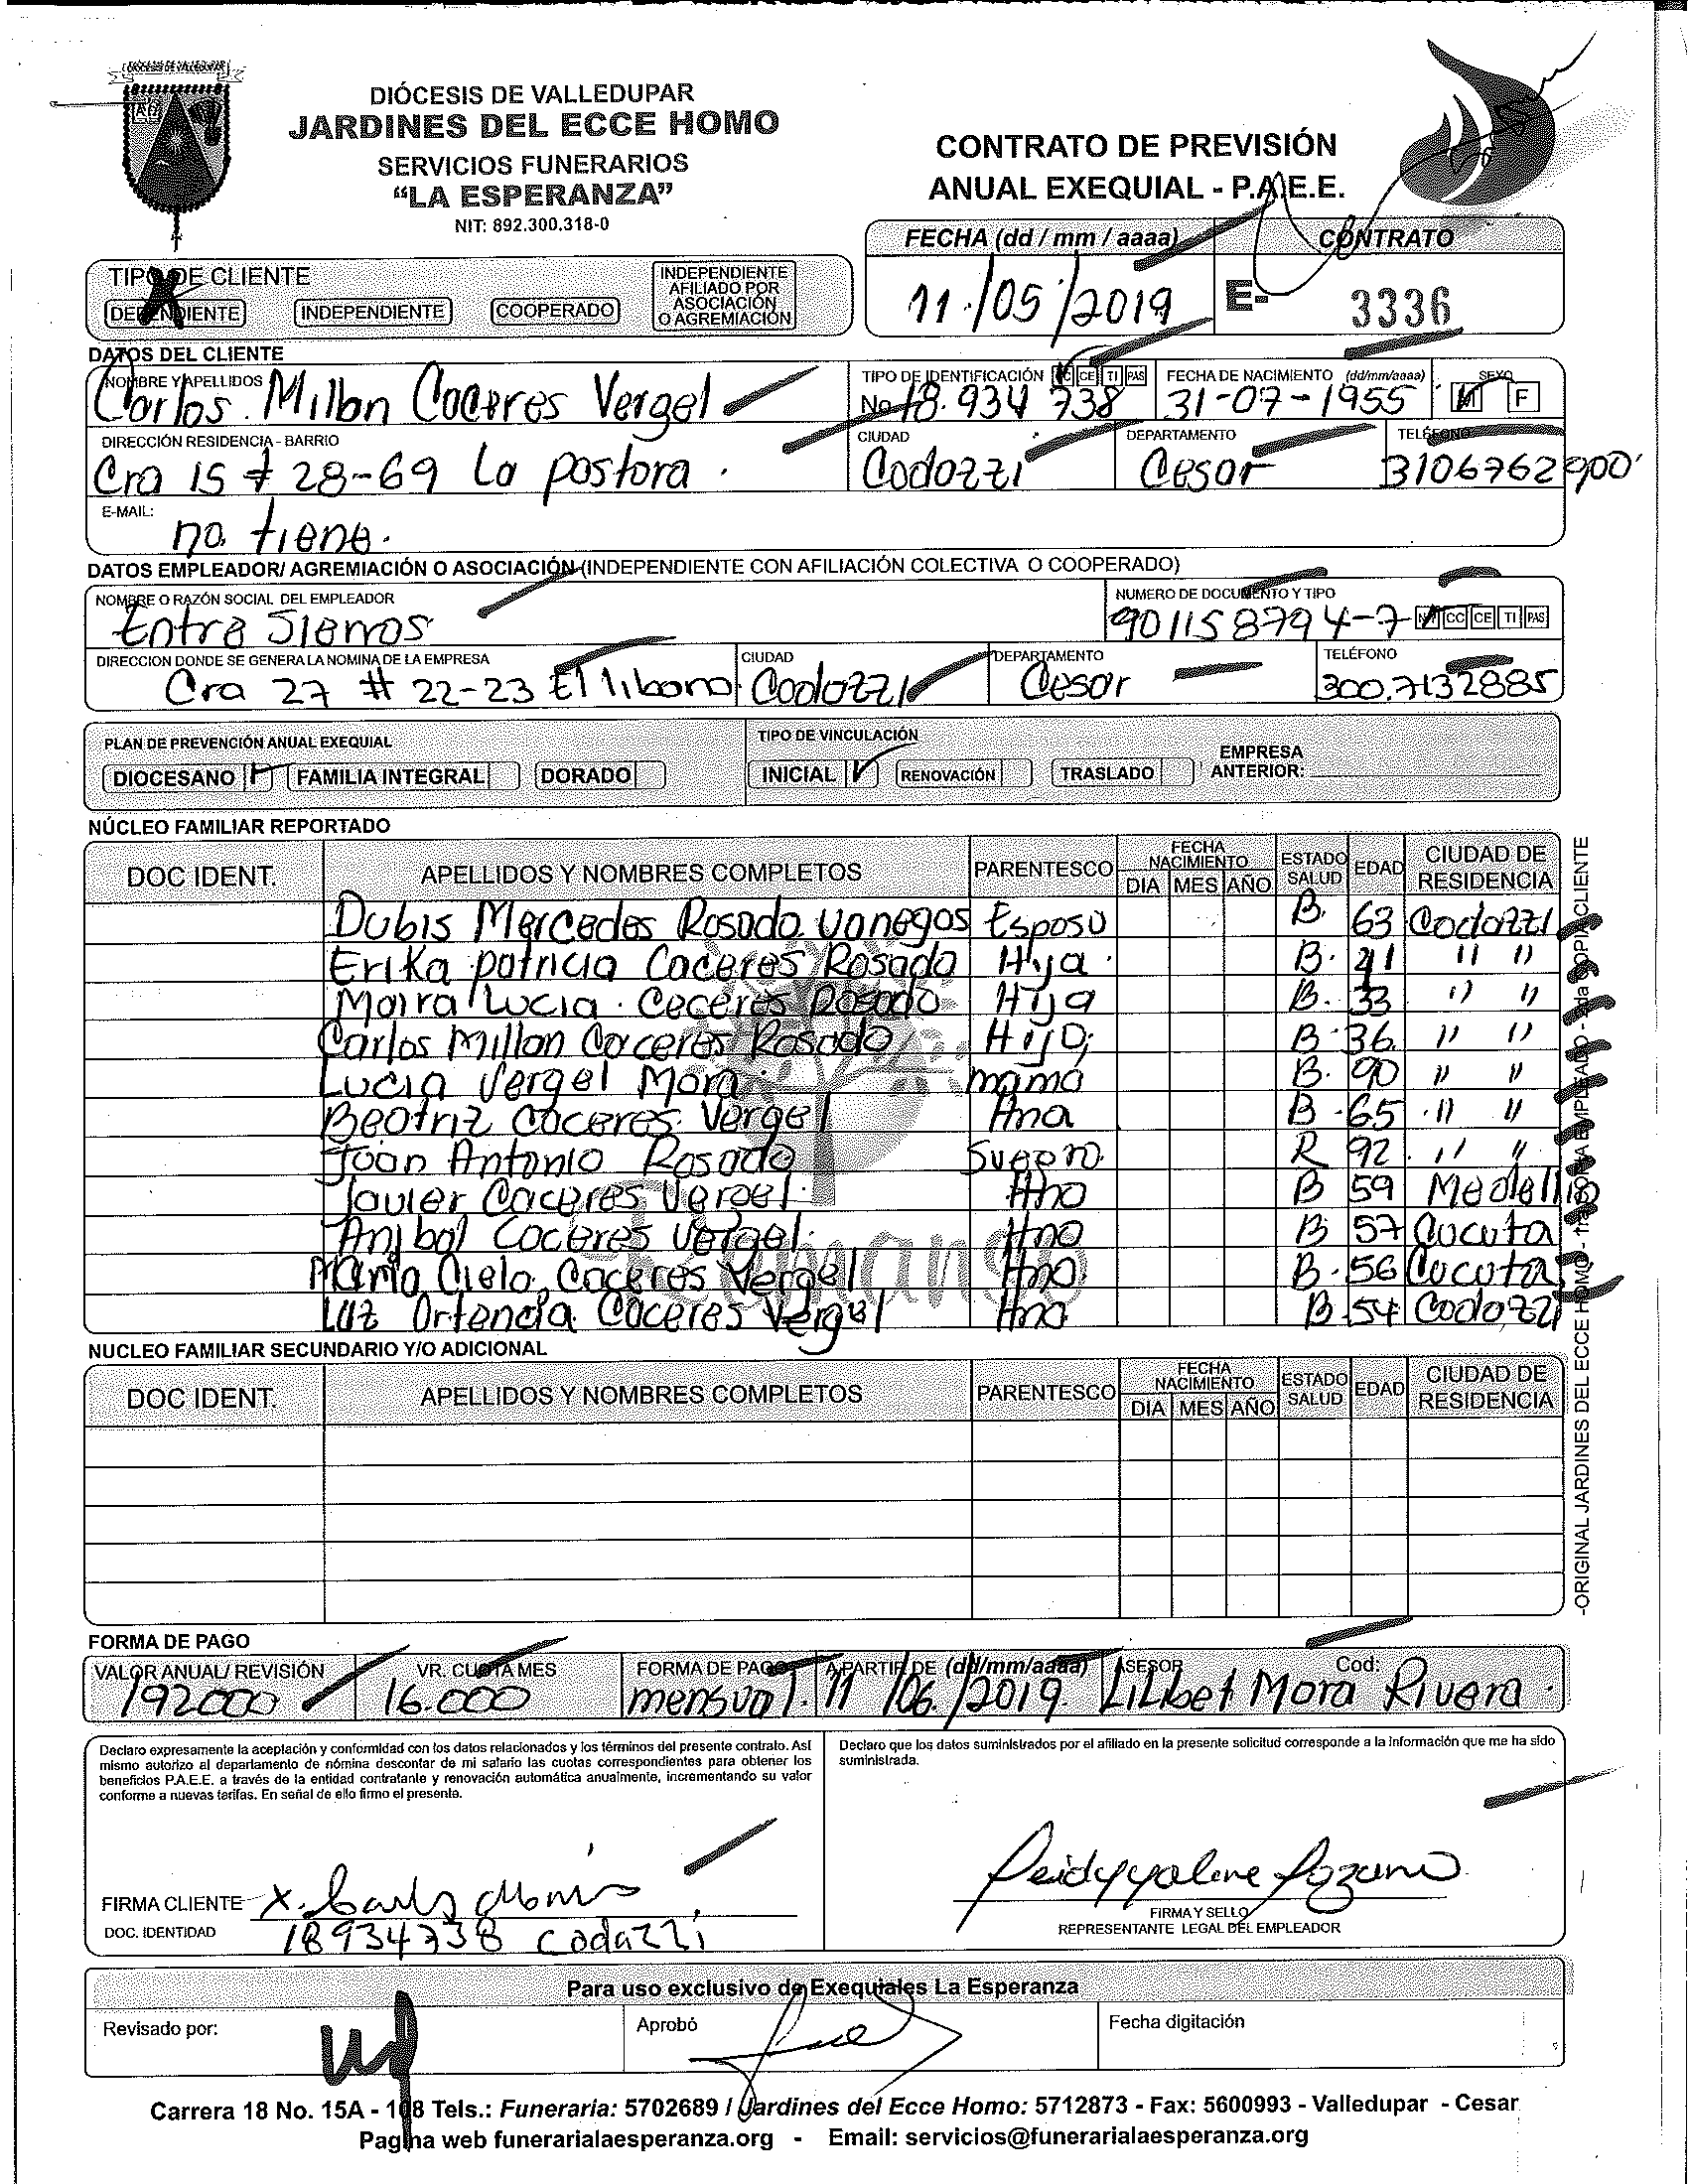 DIÓCESIS DE VALLEDUPAR
DIÓCESIS DE VALLEDUPAR
JARDINES DEL ECCE HOMO
SERVICIOS FUNERARIOS
“LA ESPERANZA”
NIT: 892.300.318-0
CONTRATO DE PREVISIÓN
ANUAL EXEQUIAL - P.A.E.E.
FECHA (dd / mm / aaaa) CONTRATO
11/05/2019 E- 3336
TIPO DE CLIENTE
DEPENDIENTE INDEPENDIENTE COOPERADO INDEPENDIENTE AFILIADO POR ASOCIACIÓN O AGREMIACIÓN
DATOS DEL CLIENTE
NOMBRE Y APELLIDOS TIPO DE IDENTIFICACIÓN CC CE TI PAS FECHA DE NACIMIENTO (dd/mm/aaaa) SEXO
Carlos Millan Caceres Vergel No 18.934 738 31-07-1955 M F
DIRECCIÓN RESIDENCIA - BARRIO CIUDAD DEPARTAMENTO TELÉFONO
Cra 15 # 28-69 La pastora. Codazzi Cesar 3106762900
E-MAIL:
no tiene.
DATOS EMPLEADOR/ AGREMIACIÓN O ASOCIACIÓN (INDEPENDIENTE CON AFILIACIÓN COLECTIVA O COOPERADO)
NOMBRE O RAZÓN SOCIAL DEL EMPLEADOR NUMERO DE DOCUMENTO Y TIPO
Entre Sierras 901158794-7 NIT CC CE TI PAS
DIRECCION DONDE SE GENERA LA NOMINA DE LA EMPRESA CIUDAD DEPARTAMENTO TELÉFONO
Cra 27 # 22-23 El libano. Codazzi Cesar 300.7132885
PLAN DE PREVENCIÓN ANUAL EXEQUIAL TIPO DE VINCULACIÓN
DIOCESANO FAMILIA INTEGRAL DORADO INICIAL RENOVACIÓN TRASLADO EMPRESA ANTERIOR:
NÚCLEO FAMILIAR REPORTADO
DOC IDENT. APELLIDOS Y NOMBRES COMPLETOS PARENTESCO FECHA NACIMIENTO DIA MES AÑO ESTADO SALUD EDAD CIUDAD DE RESIDENCIA
Dubis Mercedes Rosado vanegas Esposa B. 63 Codazzi
Erika patricia Caceres Rosado Hija B. 41 " "
Maira Lucia. Ceceres Rosado Hija B. 33 " "
Carlos Millan Caceres Rosado Hijo B. 36 " "
Lucia Vergel Mora mamá B. 90 " "
Beatriz Caceres Vergel Hna B. 65 " "
Juan Antonio Rosado Suegro R 92 " "
Javier Caceres Vergel. Hno B 59 Medellin
Anibal Caceres Vergel. Hno B 57 Cucuta
Maria Cielo Caceres Vergel Hna B. 56 Cucuta
Luz Ortencia Caceres Vergel Hna B. 54 Codazzi
NUCLEO FAMILIAR SECUNDARIO Y/O ADICIONAL
DOC IDENT. APELLIDOS Y NOMBRES COMPLETOS PARENTESCO FECHA NACIMIENTO DIA MES AÑO ESTADO SALUD EDAD CIUDAD DE RESIDENCIA
-ORIGINAL JARDINES DEL ECCE HOMO - COPIA CLIENTE
FORMA DE PAGO
VALOR ANUAL/ REVISIÓN VR. CUOTA MES FORMA DE PAGO A PARTIR DE (dd/mm/aaaa) ASESOR Cod:
192000 16.000 mensual. 11/06/2019 Lilibet Mora Rivera.
Declaro expresamente la aceptación y conformidad con los datos relacionados y los términos del presente contrato. Así
mismo autorizo al departamento de nómina descontar de mi salario las cuotas correspondientes para obtener los
beneficios P.A.E.E. a través de la entidad contratante y renovación automática anualmente, incrementando su valor
conforme a nuevas tarifas. En señal de ello firmo el presente.
Declaro que los datos suministrados por el afiliado en la presente solicitud corresponde a la información que me ha sido
suministrada.
FIRMA CLIENTE X.
DOC. IDENTIDAD 18934738 codazzi
FIRMA Y SELLO
REPRESENTANTE LEGAL DEL EMPLEADOR
Para uso exclusivo de Exequiales La Esperanza
Revisado por: Aprobó Fecha digitación
Carrera 18 No. 15A - 108 Tels.: Funeraria: 5702689 / Jardines del Ecce Homo: 5712873 - Fax: 5600993 - Valledupar - Cesar
Pagina web funerarialaesperanza.org - Email: servicios@funerarialaesperanza.org